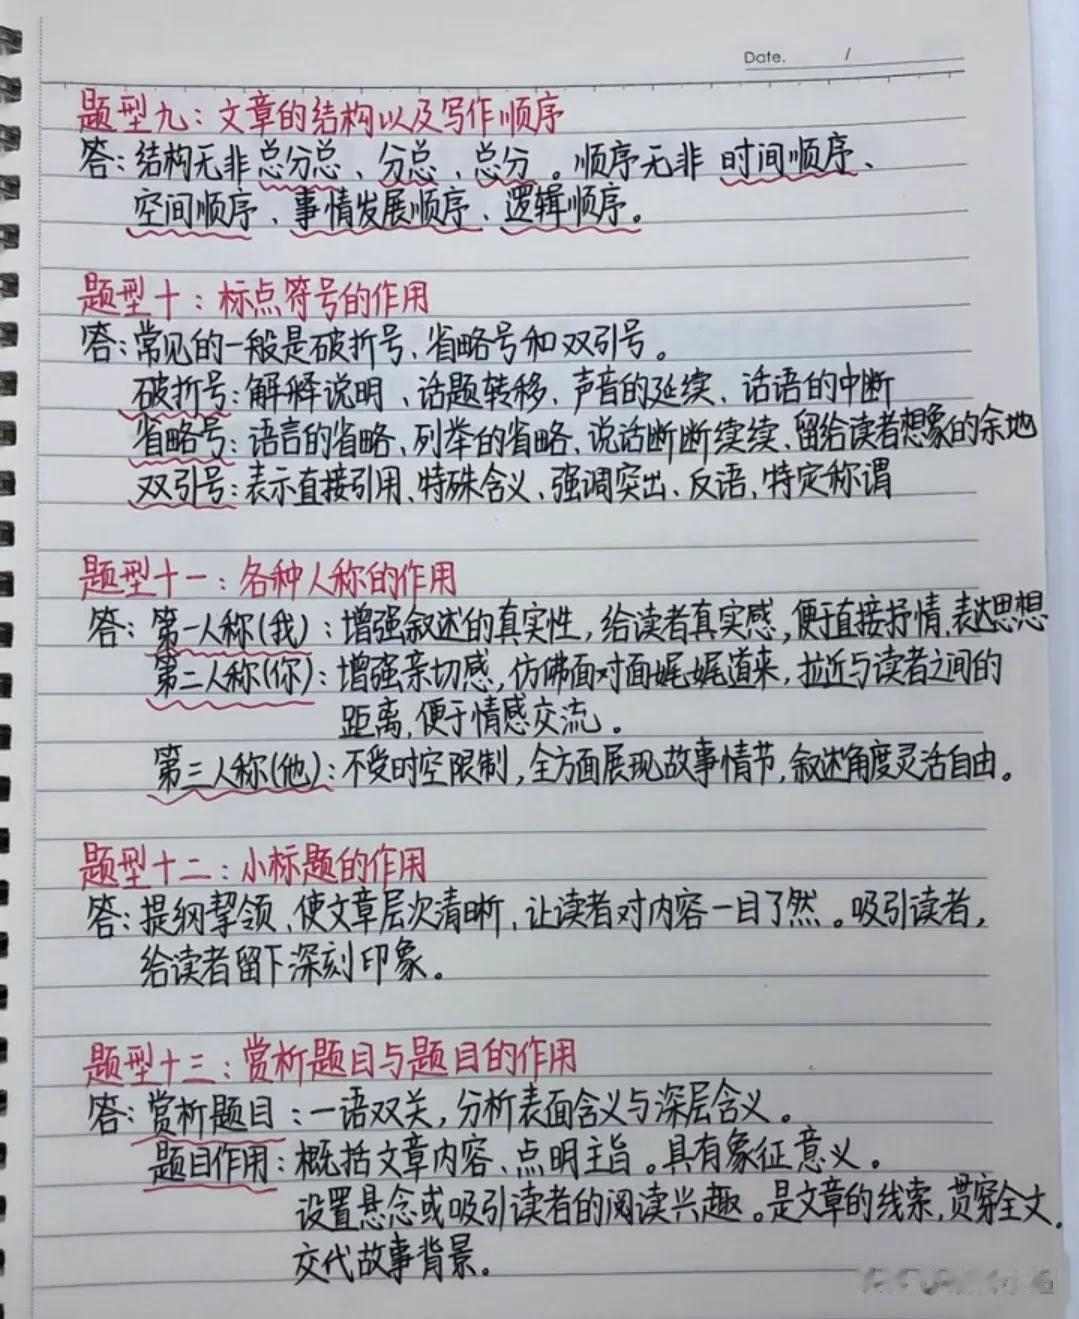 Date.      /
题型九：文章的结构以及写作顺序
答：结构无非总分总、分总、总分。顺序无非 时间顺序、
空间顺序、事情发展顺序、逻辑顺序。
题型十：标点符号的作用
答：常见的一般是破折号、省略号和双引号。
破折号：解释说明、话题转移、声音的延续、话语的中断
省略号：语言的省略、列举的省略、说话断断续续、留给读者想象的余地
双引号：表示直接引用、特殊含义、强调突出、反语、特定称谓
题型十一：各种人称的作用
答：第一人称(我)：增强叙述的真实性，给读者真实感，便于直接抒情、表达思想
第二人称(你)：增强亲切感，仿佛面对面娓娓道来，拉近与读者之间的
距离，便于情感交流。
第三人称(他)：不受时空限制，全方面展现故事情节，叙述角度灵活自由。
题型十二：小标题的作用
答：提纲挈领、使文章层次清晰、让读者对内容一目了然。吸引读者，
给读者留下深刻印象。
题型十三：赏析题目与题目的作用
答：赏析题目：一语双关，分析表面含义与深层含义。
题目作用：概括文章内容、点明主旨。具有象征意义。
设置悬念或吸引读者的阅读兴趣。是文章的线索，贯穿全文。
交代故事背景。